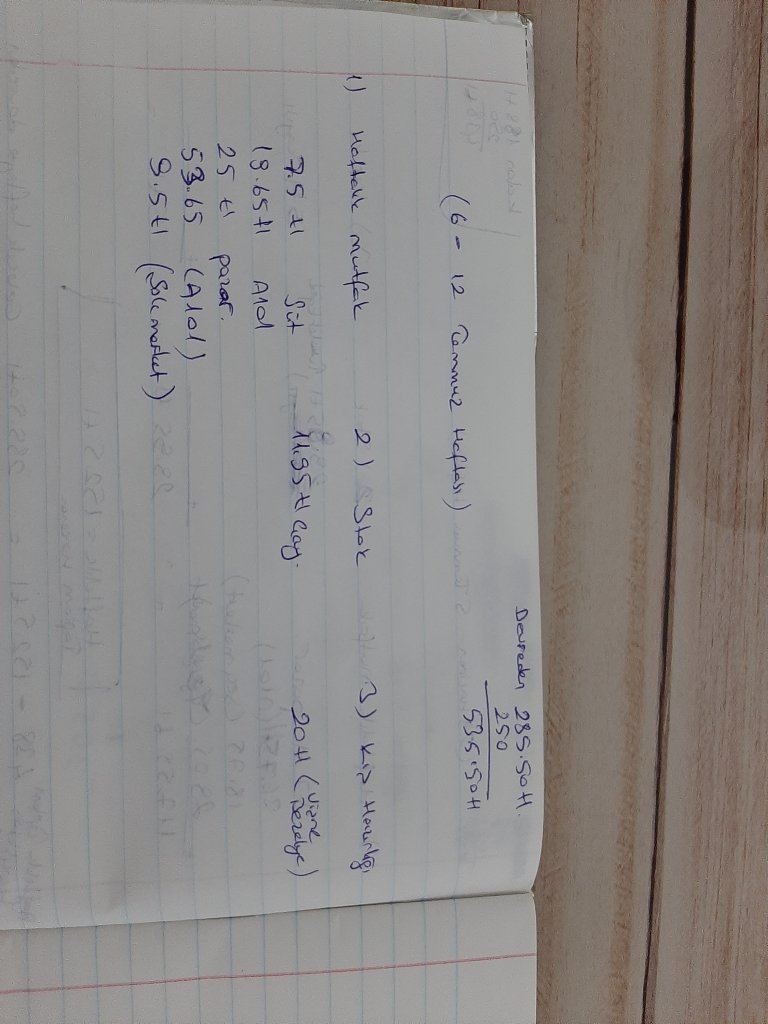 Devreden 285.50 tl.
250
535.50 tl
(6 - 12 Temmuz Haftası)
1) Haftalık mutfak
7.5 tl Süt
19.65 tl A101
25 tl pazar.
53.65 (A101)
9.5 tl (Şok market)
2) Stok
11.95 tl Çay.
3) Kış Hazırlığı
20 tl (Vişne
Reçeli)